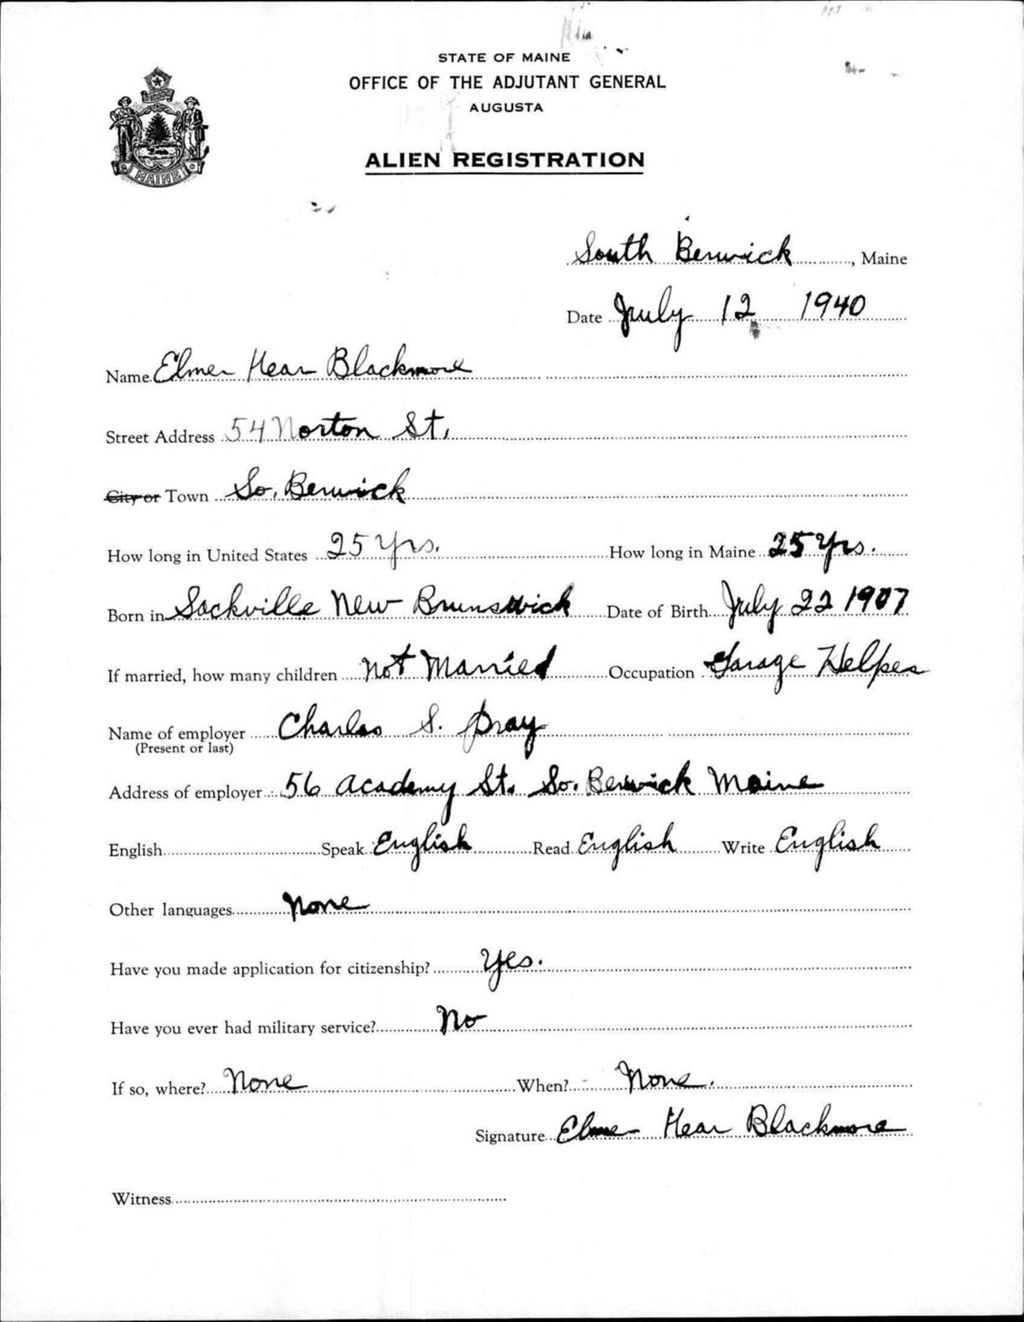 STATE OF MAINE
OFFICE OF THE ADJUTANT GENERAL
AUGUSTA
ALIEN REGISTRATION
MAINE
South Berwick, Maine
Date July 12 1940
Name Elmer Hear Blackmore
Street Address 54 Norton St.
City or Town So. Berwick
How long in United States 25 Yrs. How long in Maine 25 Yrs.
Born in Sackville New Brunswick Date of Birth July 22 1907
If married, how many children Not Married Occupation Garage Helper
Name of employer Charles S. Pray
(Present or last)
Address of employer 56 Academy St. So. Berwick Maine
English Speak English Read English Write English
Other languages None
Have you made application for citizenship? Yes.
Have you ever had military service? No
If so, where? None When? None.
Signature Elmer Hear Blackmore
Witness